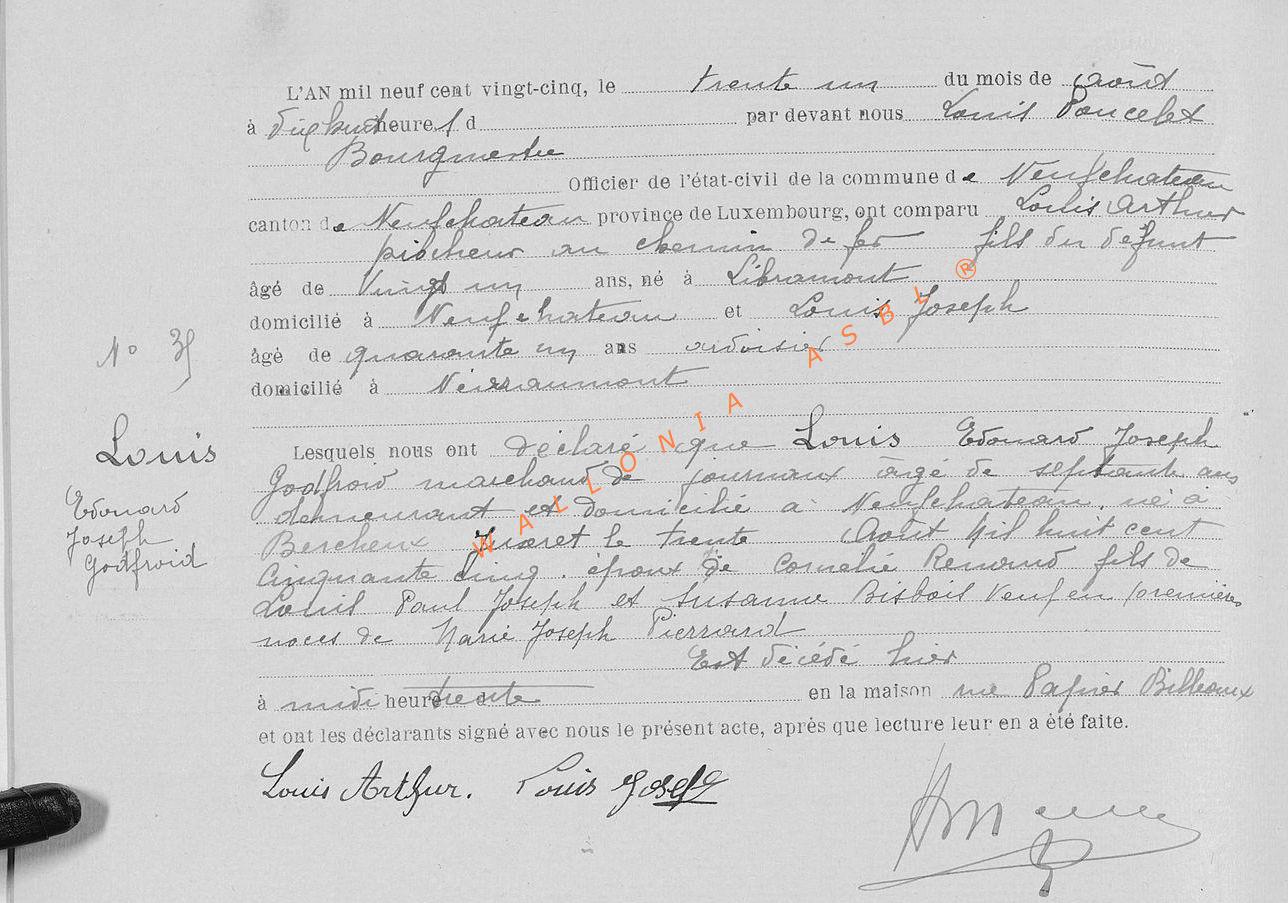 L'AN mil neuf cent vingt-cinq, le trente un du mois de août
à dix huit heures d par devant nous Louis Poncelet
Bourgmestre
Officier de l'état-civil de la commune de Neufchateau
canton de Neufchateau province de Luxembourg, ont comparu Louis Arthur
piocheur au chemin de fer fils du défunt
âgé de Vingt un ans, né à Libramont
domicilié à Neufchateau et Louis Joseph
âgé de quarante un ans ardoisier
domicilié à
N° 35
Louis
Edouard
Joseph
Godfroid
Lesquels nous ont déclaré que Louis Edouard Joseph
Godfroid marchand de journaux âgé de septante ans
demeurant et domicilié à Neufchateau, né à
Bercheux Juseret le trente Août Mil huit cent
Cinquante cinq. époux de Cornélie Renaud fils de
Louis Paul Joseph et Susanne Bisbois Veuf en premières
noces de Marie Joseph Pierrard
Est décédé hier
à midi heure trente en la maison rue
et ont les déclarants signé avec nous le présent acte, après que lecture leur en a été faite.
Louis Arthur. Louis Joseph
WALLONIA ASBL ®